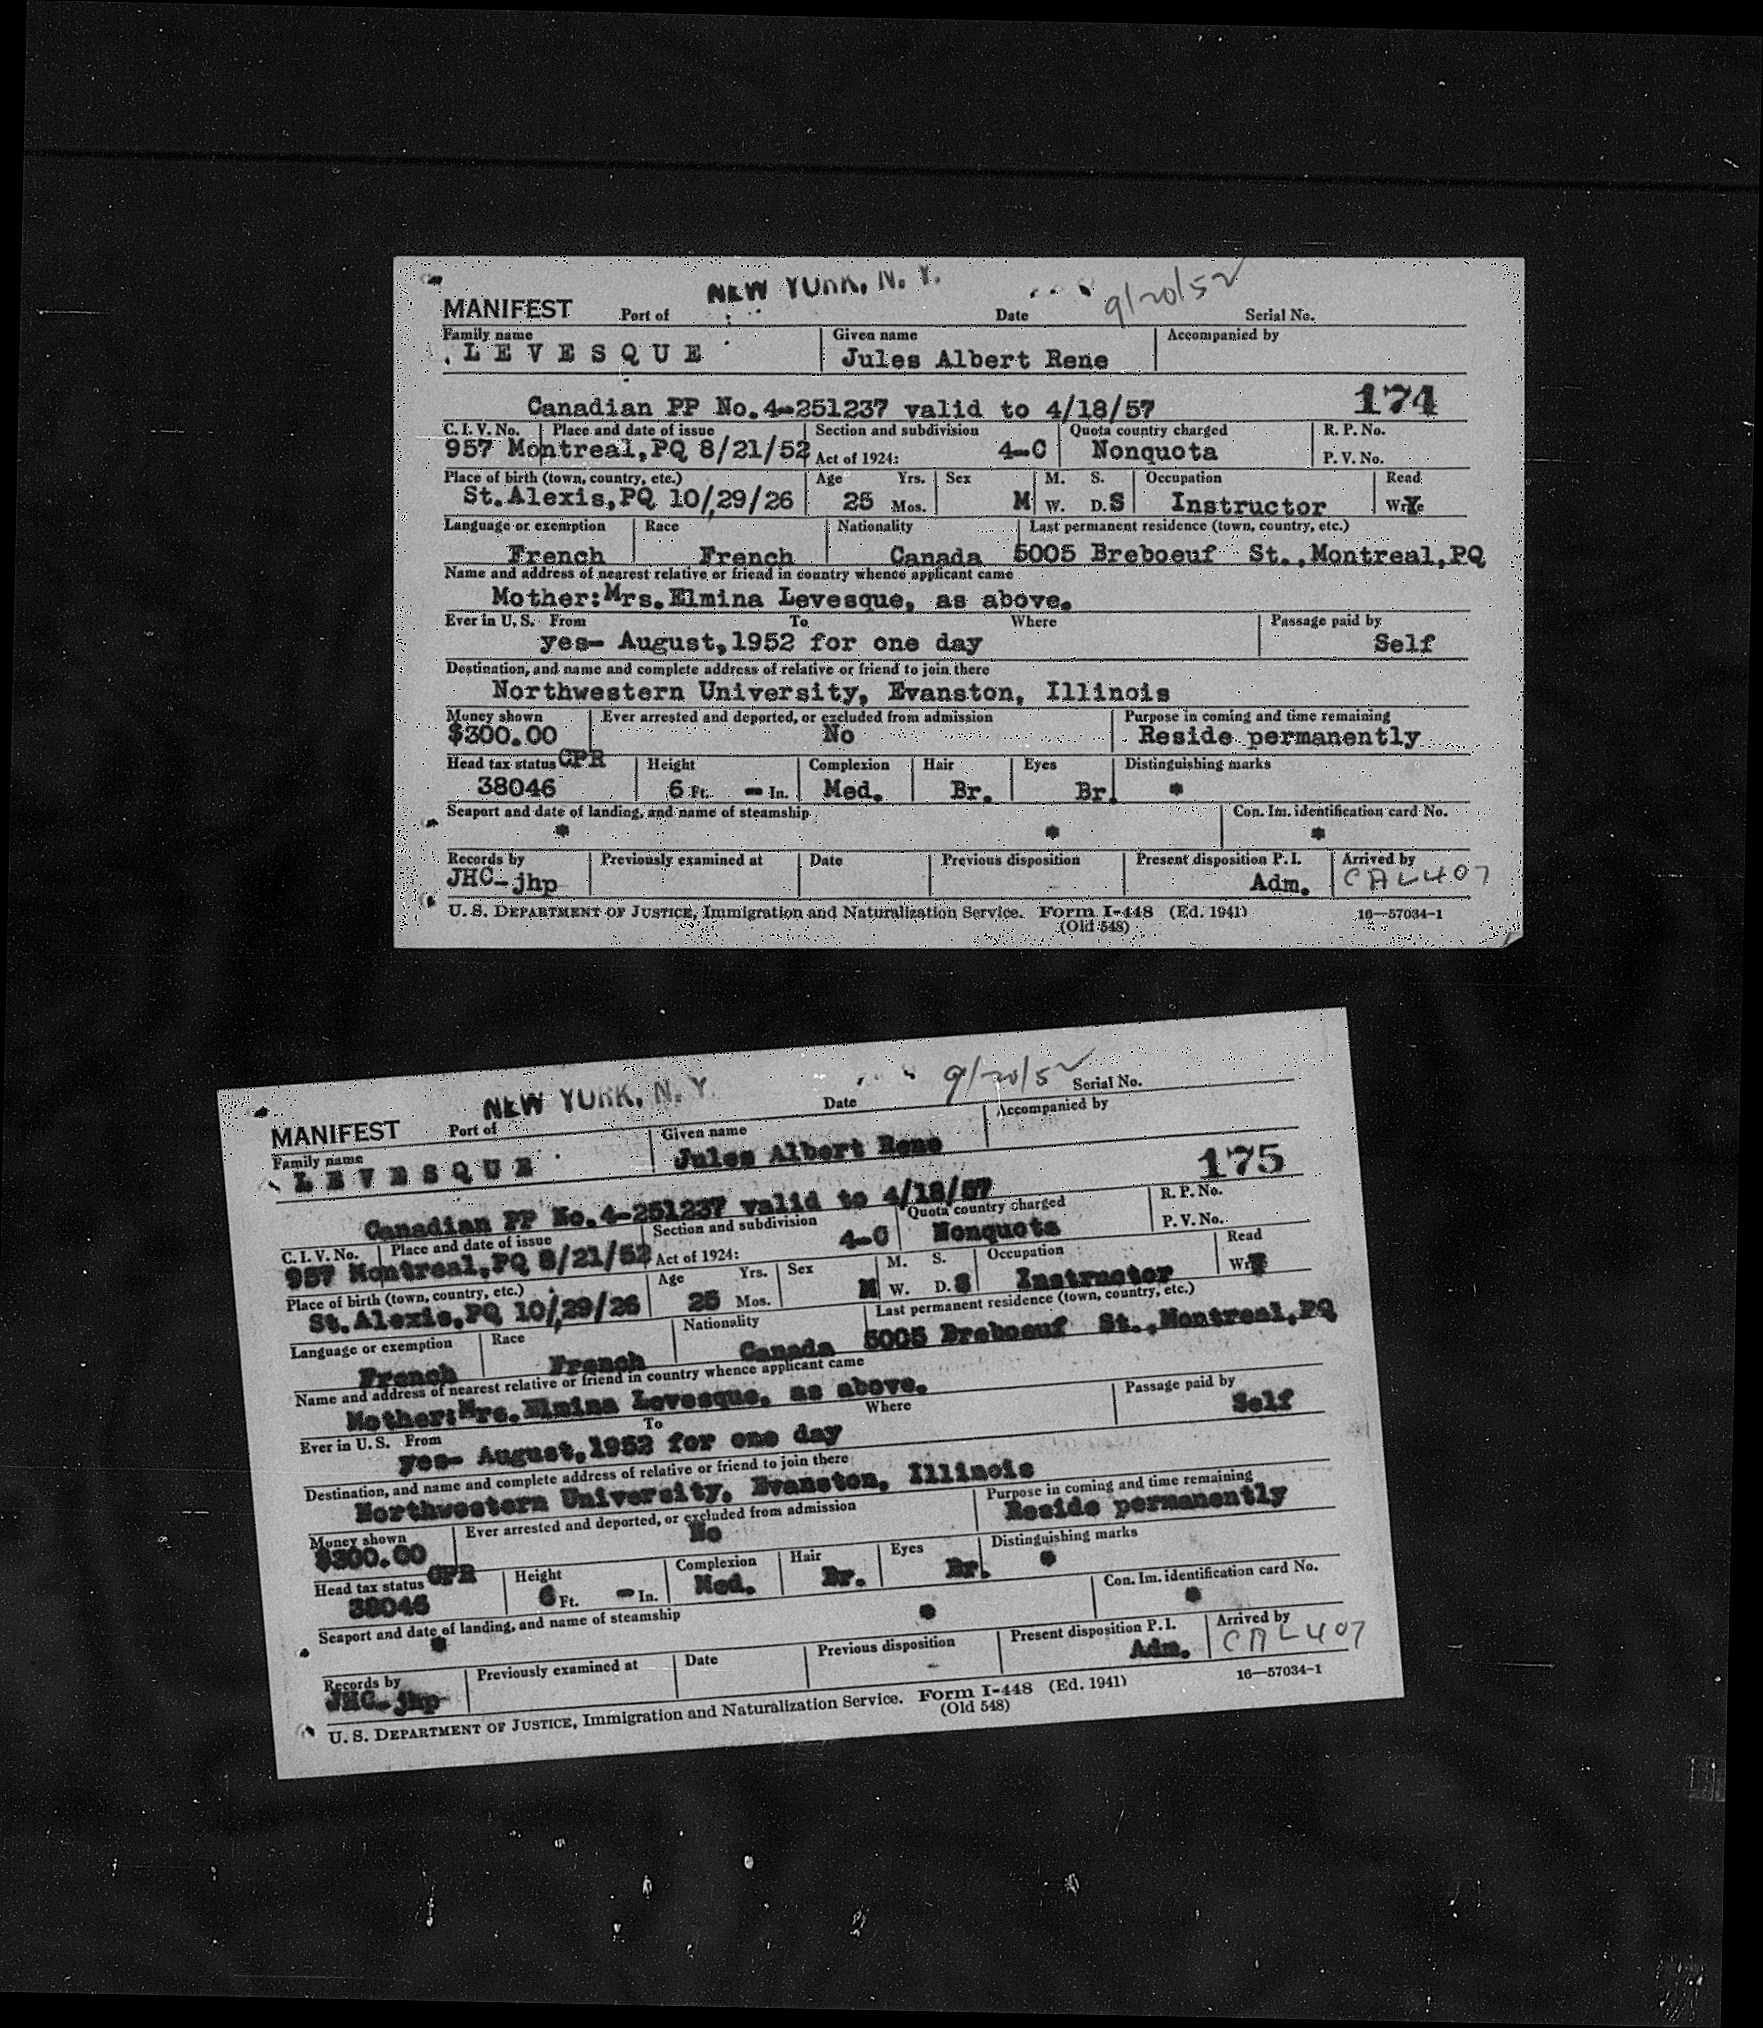 MANIFEST Port of NEW YORK, N. Y. Date 9/20/52 Serial No.
Family name Given name Accompanied by
LEVESQUE Jules Albert Rene
174
Canadian PP No.4-251237 valid to 4/18/57
C. I. V. No. Place and date of issue Section and subdivision Quota country charged R. P. No.
957 Montreal,PQ 8/21/52 Act of 1924: 4-C Nonquota P. V. No.
Place of birth (town, country, etc.) Age Yrs. Sex M. S. Occupation Read
St.Alexis,PQ 10/29/26 25 Mos. M W. D. S Instructor Write
Language or exemption Race Nationality Last permanent residence (town, country, etc.)
French French Canada 5005 Breboeuf St.,Montreal,PQ
Name and address of nearest relative or friend in country whence applicant came
Mother:Mrs.Elmina Levesque, as above.
Ever in U. S. From To Where Passage paid by
yes- August,1952 for one day Self
Destination, and name and complete address of relative or friend to join there
Northwestern University, Evanston, Illinois
Money shown Ever arrested and deported, or excluded from admission Purpose in coming and time remaining
$300.00 No Reside permanently
Head tax status CPR Height Complexion Hair Eyes Distinguishing marks
38046 6 Ft. - In. Med. Br. Br. *
Seaport and date of landing, and name of steamship Con. Im. identification card No.
* * *
Records by Previously examined at Date Previous disposition Present disposition P. I. Arrived by
JHC-jhp Adm. CAL 407
U. S. DEPARTMENT OF JUSTICE, Immigration and Naturalization Service. Form I-448 (Ed. 1941) 16—57034-1
(Old 548)
MANIFEST Port of NEW YORK, N. Y. Date 9/20/52 Serial No.
Family name Given name Accompanied by
LEVESQUE Jules Albert Rene
175
Canadian PP No.4-251237 valid to 4/18/57
C. I. V. No. Place and date of issue Section and subdivision Quota country charged R. P. No.
957 Montreal,PQ 8/21/52 Act of 1924: 4-C Nonquota P. V. No.
Place of birth (town, country, etc.) Age Yrs. Sex M. S. Occupation Read
St.Alexis,PQ 10/29/26 25 Mos. M W. D. S Instructor Write
Language or exemption Race Nationality Last permanent residence (town, country, etc.)
French French Canada 5005 Breboeuf St.,Montreal,PQ
Name and address of nearest relative or friend in country whence applicant came
Mother:Mrs.Elmina Levesque, as above.
Ever in U. S. From To Where Passage paid by
yes- August,1952 for one day Self
Destination, and name and complete address of relative or friend to join there
Northwestern University, Evanston, Illinois
Money shown Ever arrested and deported, or excluded from admission Purpose in coming and time remaining
$300.00 No Reside permanently
Head tax status CPR Height Complexion Hair Eyes Distinguishing marks
38046 6 Ft. - In. Med. Br. Br. *
Seaport and date of landing, and name of steamship Con. Im. identification card No.
* * *
Records by Previously examined at Date Previous disposition Present disposition P. I. Arrived by
JHC-jhp Adm. CAL 407
U. S. DEPARTMENT OF JUSTICE, Immigration and Naturalization Service. Form I-448 (Ed. 1941) 16—57034-1
(Old 548)